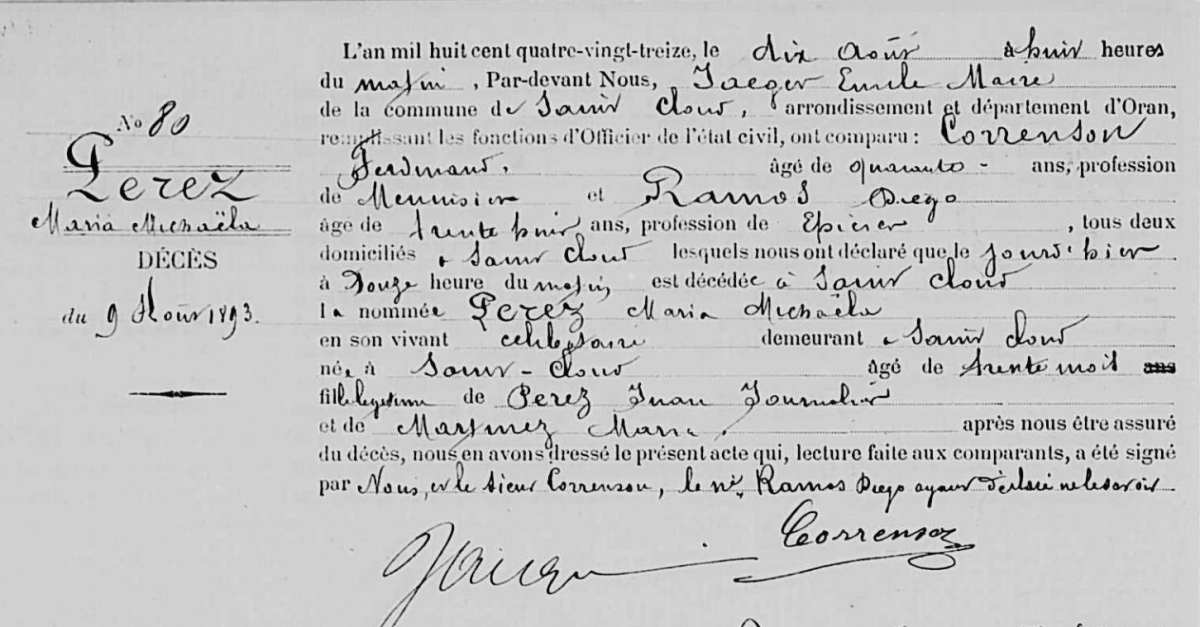 No 80
Perez
Maria Michaëla
DÉCÈS
du 9 Août 1893.
L'an mil huit cent quatre-vingt-treize, le dix Août à huit heures
du matin, Par-devant Nous, Jaeger Emile Maire
de la commune de Saint Cloud, arrondissement et département d'Oran,
remplissant les fonctions d'Officier de l'état civil, ont comparu : Correnson
Ferdinand, âgé de quarante - ans, profession
de Menuisier et Ramos Diego
âgé de trente huit ans, profession de Epicier, tous deux
domiciliés à Saint Cloud lesquels nous ont déclaré que le jourd'hier
à Douze heure du matin, est décédée à Saint Cloud
la nommée Perez Maria Michaëla
en son vivant célibataire demeurant à Saint Cloud
née à Saint-Cloud âgé de trente mois ans
fille légitime de Perez Juan Journalier
et de Martinez Maria. après nous être assuré
du décès, nous en avons dressé le présent acte qui, lecture faite aux comparants, a été signé
par Nous, et le Sieur Correnson, le né, Ramos Diego ayant déclaré ne le savoir.
Correnson